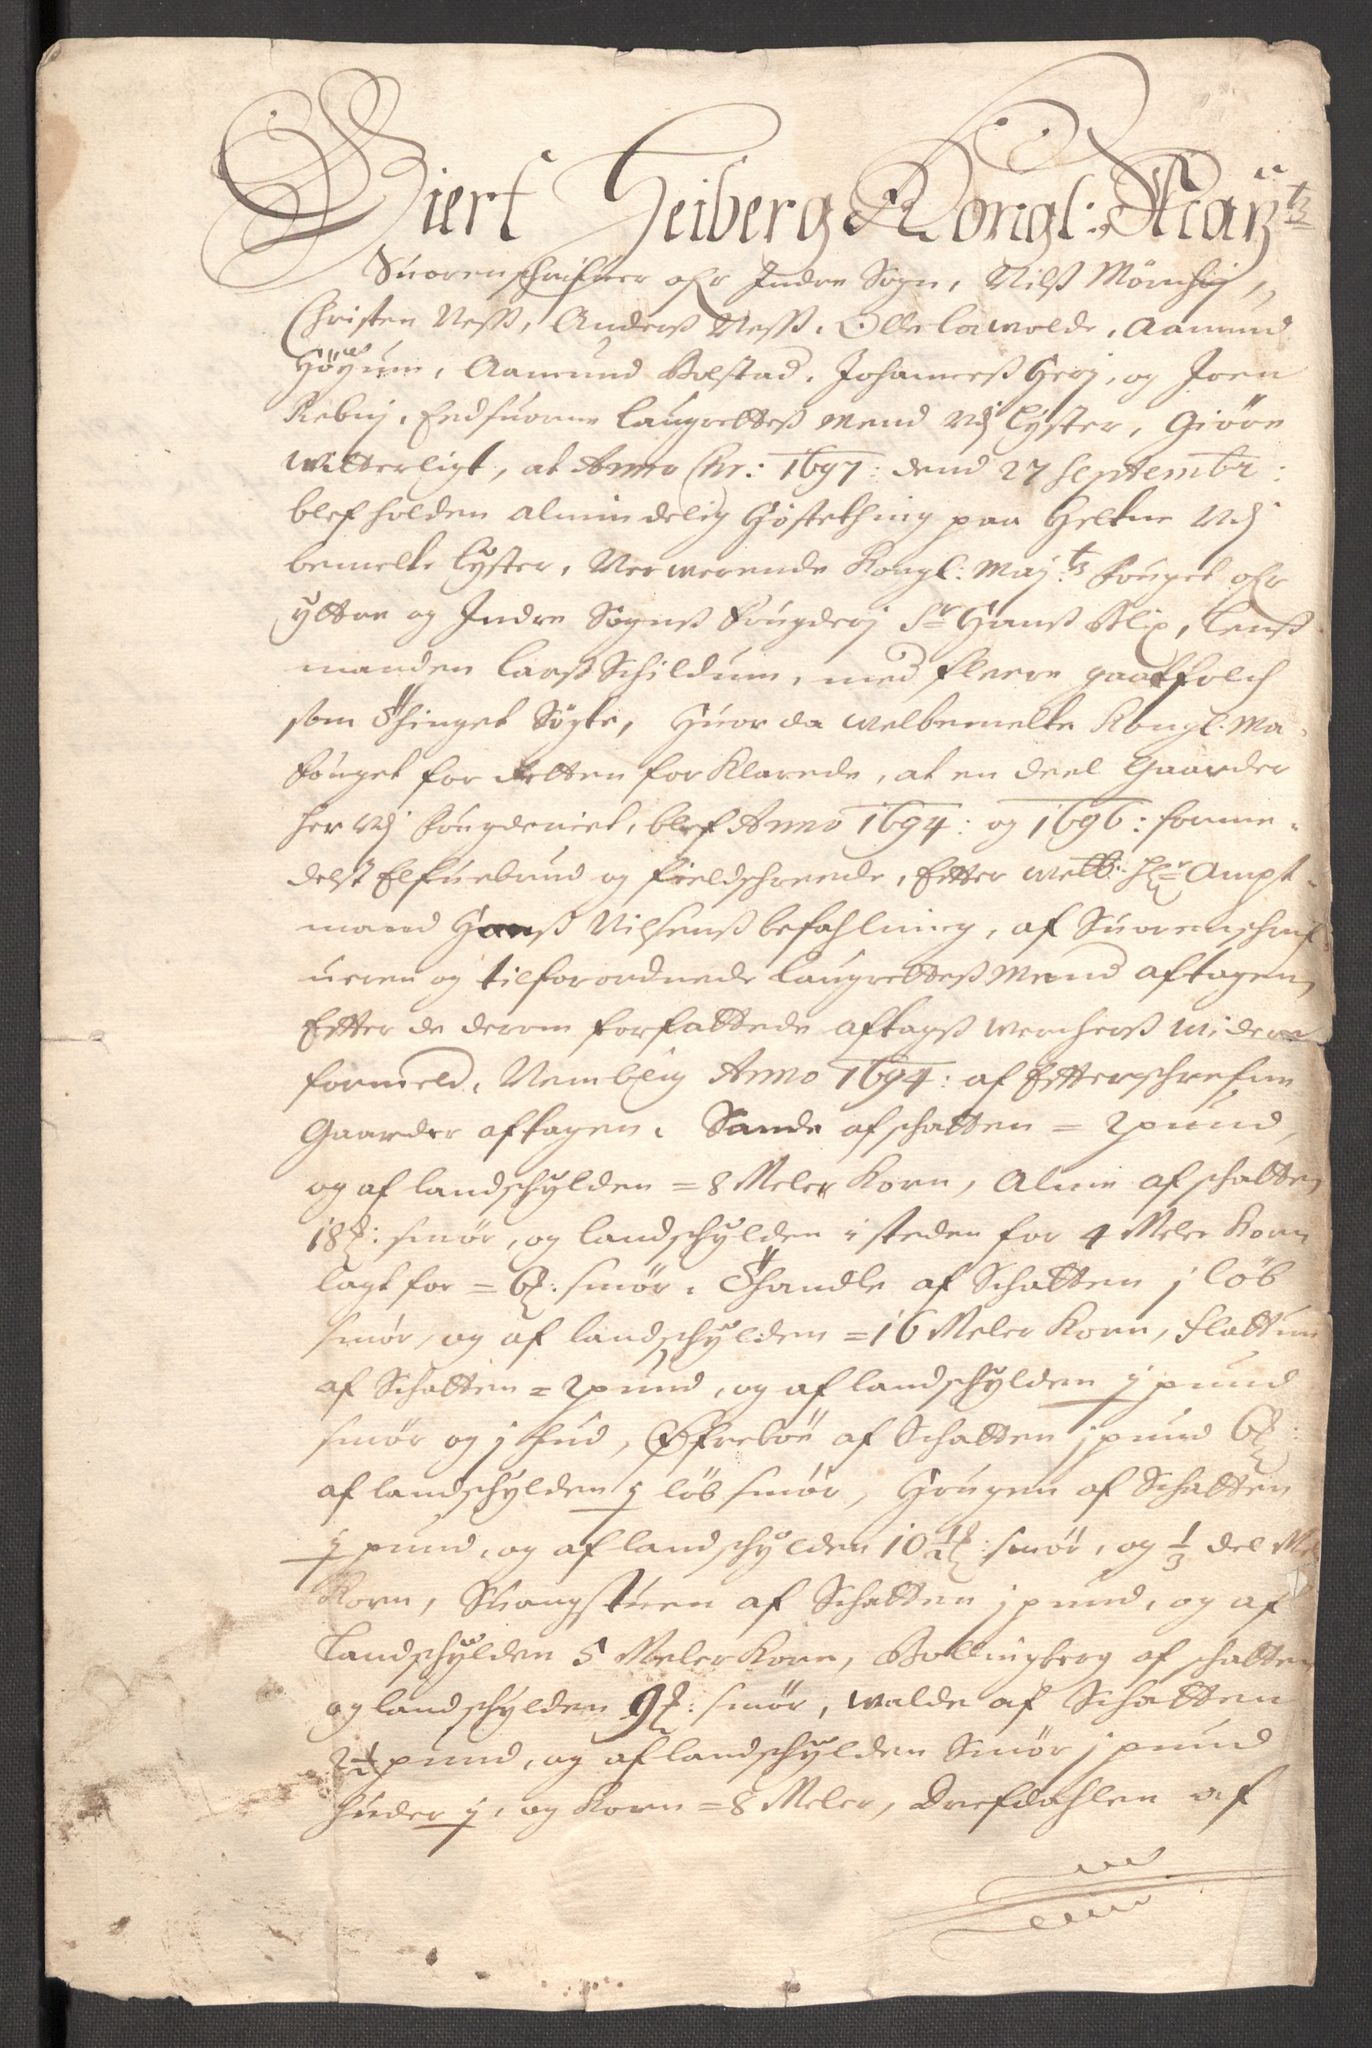 Giert Heiberg Kongl: Maÿ:tz
Suorenschrifuer ofr Indre Sogn, Nilß Mörchrj,
Christen Neß, Anderß Neß, Olle Lawolde, Aamund
Höÿum, Aamund Bolstad, Johanneß Herj, og Joen
Rebnj, Eedsuorne Laugretteß Mend udj Lyster, Giöre
witterligt, at Anno Chr: 1697: dend 27 Septembr:
blef holden almindelig Höstething paa Heltne udj
bemelte Lyster, Neruerende Kongl: Maj:tz fouget ofr
yttre og Indre Sognß fougderj Sr Hanß Blix, Lenß
manden Larß Schildum, med fleere gaatfolch
som Thinget Sögte, Huor da welbemelte Kongl. Ma.
fouget for Retten forklarede, at en deel Gaarder
her udj fougderiet, blef Anno 1694: og 1696: forme-
delst Elfuebrud og fieldschreede, Efter welb: Hr Ampt-
mand Hanß Nilsenß befahlning, af Suorenschrif
ueren og tilforordnede Laugretteß Mend aftagen,
Efter de derom forfattede aftagß werckerß widere
formeld, Nemblig Anno 1694: af Efterschrefne
Gaarder aftagen. Sande af schatten = 2 pund,
og af landschylden = 8 Meler Korn, Alme af schatten
18 ℔: smör, og landschylden i steden for 4 Meler Korn
lagt for = 6 ℔: smör. Thandle af Schatten j löb
smör, og af landschylden = 16 Meler Korn, Flattum
af Schatten = 2 pund, og af landschylden j pund
smör og j hud, Øfreböe af Schatten j pund 6 ℔:
af landschylden j löb smör, Hougen af Schatten
j pund, og af landschylden 10 1/2 ℔: smör, og 1/3 del Mel
Korn, Krangstuen af Schatten j pund, og af
Landschylden 5 Meler Korn, Bollingberg af schatten
og landschylden 9 ℔: smör, walde af Schatten
2 1/2 pund, og af landschylden Smör j pund
huder j, og Korn = 8 Meler, Drefdahlen af